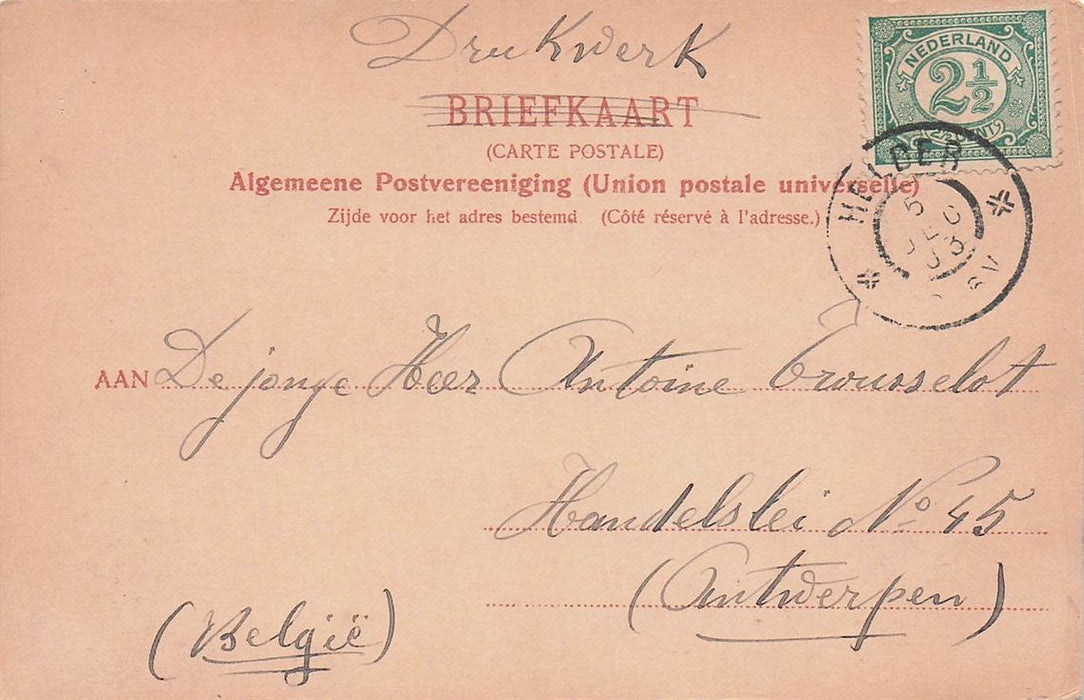 Drukwerk
BRIEFKAART
(CARTE POSTALE)
Algemeene Postvereeniging (Union postale universelle)
Zijde voor het adres bestemd (Côté réservé à l'adresse.)
NEDERLAND
2½
HELDER
5
DEC
03
AAN De jonge Heer Antoine Trousselot
Handelslei No 45
(Antwerpen)
(België)